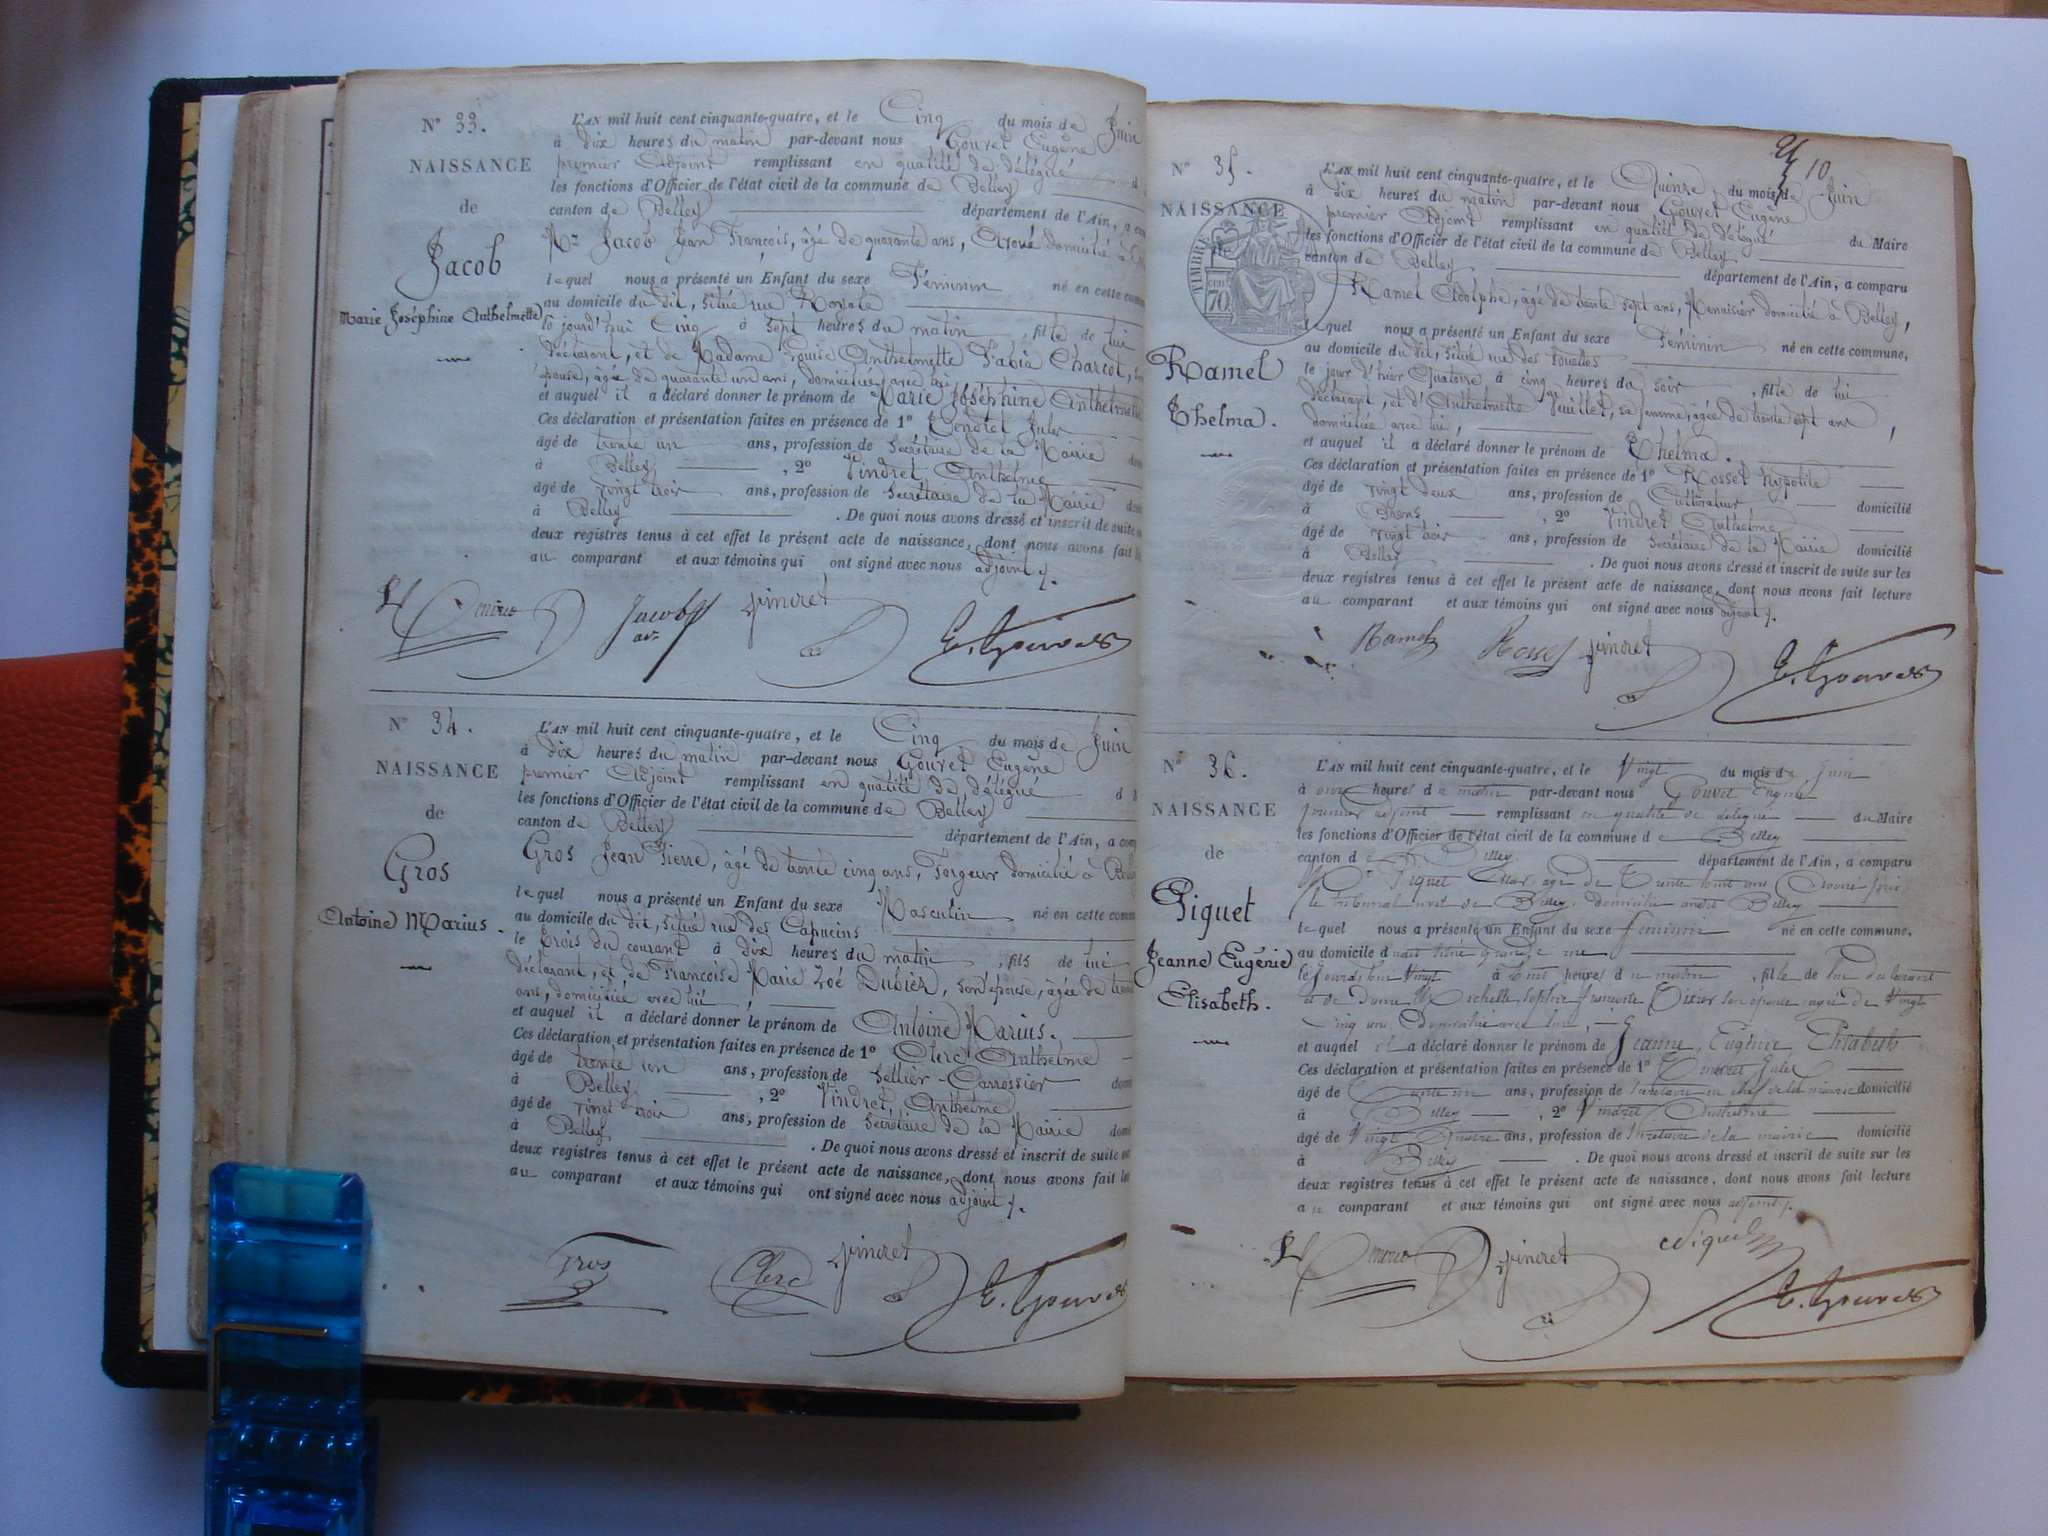 N° 33.
NAISSANCE
de
Jacob
Marie Joséphine Anthelmette
L'AN mil huit cent cinquante-quatre, et le Cinq du mois de Juin
à Dix heures du matin par-devant nous Gouvet Eugène
premier Adjoint remplissant en qualité de délégué d
les fonctions d'Officier de l'état civil de la commune de Belley
canton de Belley département de l'Ain, a com
Mr Jacob Jean François, âgé de quarante ans, Avoué domicilié à
lequel nous a présenté un Enfant du sexe Féminin né en cette comm
au domicile du dit, situé rue Royale
le jourd'hui Cinq à sept heures du matin, fille de lui
déclarant, et de Madame Louise Anthelmette Fabia Charcot,
épouse, âgée de quarante un ans, domiciliée avec lui
et auquel il a déclaré donner le prénom de Marie Joséphine Anthelmette
Ces déclaration et présentation faites en présence de 1° Jules
âgé de trente un ans, profession de Secrétaire de la Mairie dom
à Belley, 2° Vindret Anthelme
âgé de vingt trois ans, profession de Secrétaire de la Mairie dom
à Belley. De quoi nous avons dressé et inscrit de suite
deux registres tenus à cet effet le présent acte de naissance, dont nous avons fait le
au comparant et aux témoins qui ont signé avec nous adjoint.
Jacob
avé
Vindret
E. Gouvet
N° 34.
NAISSANCE
de
Gros
Antoine Marius.
L'AN mil huit cent cinquante-quatre, et le Cinq du mois de Juin
à Dix heures du matin par-devant nous Gouvet Eugène
premier Adjoint remplissant en qualité de délégué d
les fonctions d'Officier de l'état civil de la commune de Belley
canton de Belley département de l'Ain, a comp
Gros Jean Pierre, âgé de trente cinq ans, Forgeur domicilié à
lequel nous a présenté un Enfant du sexe Masculin né en cette comm
au domicile du dit, situé rue des Capucins
le trois du courant à dix heures du matin, fils de lui
déclarant, et de Françoise Marie Zoé Dubier, son épouse, âgée de
ans, domiciliée avec lui,
et auquel il a déclaré donner le prénom de Antoine Marius.
Ces déclaration et présentation faites en présence de 1° Clerc Anthelme
âgé de trente un ans, profession de Sellier-Carrossier domi
à Belley, 2° Vindret Anthelme
âgé de vingt trois ans, profession de Secrétaire de la Mairie domi
à Belley. De quoi nous avons dressé et inscrit de suite
deux registres tenus à cet effet le présent acte de naissance, dont nous avons fait le
au comparant et aux témoins qui ont signé avec nous adjoint.
Gros
Clerc
Vindret
E. Gouvet
10
N° 35.
NAISSANCE
TIMBRE
70
Ramel
Thelma.
L'AN mil huit cent cinquante-quatre, et le Quinze du mois de Juin
à dix heures du matin par-devant nous Gouvet Eugène
premier Adjoint remplissant en qualité de délégué du Maire
les fonctions d'Officier de l'état civil de la commune de Belley.
canton de Belley. département de l'Ain, a comparu
Ramel Adolphe, âgé de trente sept ans, Menuisier domicilié à Belley,
lequel nous a présenté un Enfant du sexe Féminin né en cette commune,
au domicile du dit, situé rue des
le jour d'hier Quatorze à cinq heures du soir, fille de lui
déclarant, et d'Anthelmette Vuillet, sa femme, âgée de trente sept ans,
domiciliée avec lui,
et auquel il a déclaré donner le prénom de Thelma.
Ces déclaration et présentation faites en présence de 1° Rosset Hypolite
âgé de vingt deux ans, profession de Cultivateur domicilié
à, 2° Vindret Anthelme
âgé de vingt trois ans, profession de Secrétaire de la Mairie domicilié
à Belley. De quoi nous avons dressé et inscrit de suite sur les
deux registres tenus à cet effet le présent acte de naissance, dont nous avons fait lecture
au comparant et aux témoins qui ont signé avec nous adjoint.
Ramel
Rosset
Vindret
E. Gouvet
N° 36.
NAISSANCE
de
Piguet
Jeanne Eugénie
Elisabeth.
L'AN mil huit cent cinquante-quatre, et le Vingt du mois de Juin
à onze heures du matin par-devant nous Gouvet Eugène
premier adjoint remplissant en qualité de délégué du Maire
les fonctions d'Officier de l'état civil de la commune de Belley
canton de Belley département de l'Ain, a comparu
Mr Piguet, âgé de trente huit ans, Avoué près
le tribunal civil de Belley, domicilié audit Belley
lequel nous a présenté un Enfant du sexe féminin né en cette commune,
au domicile dudit situé grande rue
le jourd'hui Vingt à huit heures du matin, fille de lui déclarant
et de dame Sophie son épouse âgée de Vingt
Cinq ans domiciliée avec lui,
et auquel il a déclaré donner le prénom de Jeanne, Eugénie, Elisabeth
Ces déclaration et présentation faites en présence de 1° Jules
âgé de trente un ans, profession de Secrétaire en chef de la mairie domicilié
à Belley, 2° Vindret Anthelme
âgé de Vingt Quatre ans, profession de Secrétaire de la mairie domicilié
à Belley. De quoi nous avons dressé et inscrit de suite sur les
deux registres tenus à cet effet le présent acte de naissance, dont nous avons fait lecture
au comparant et aux témoins qui ont signé avec nous adjoint.
Vindret
Piguet
E. Gouvet